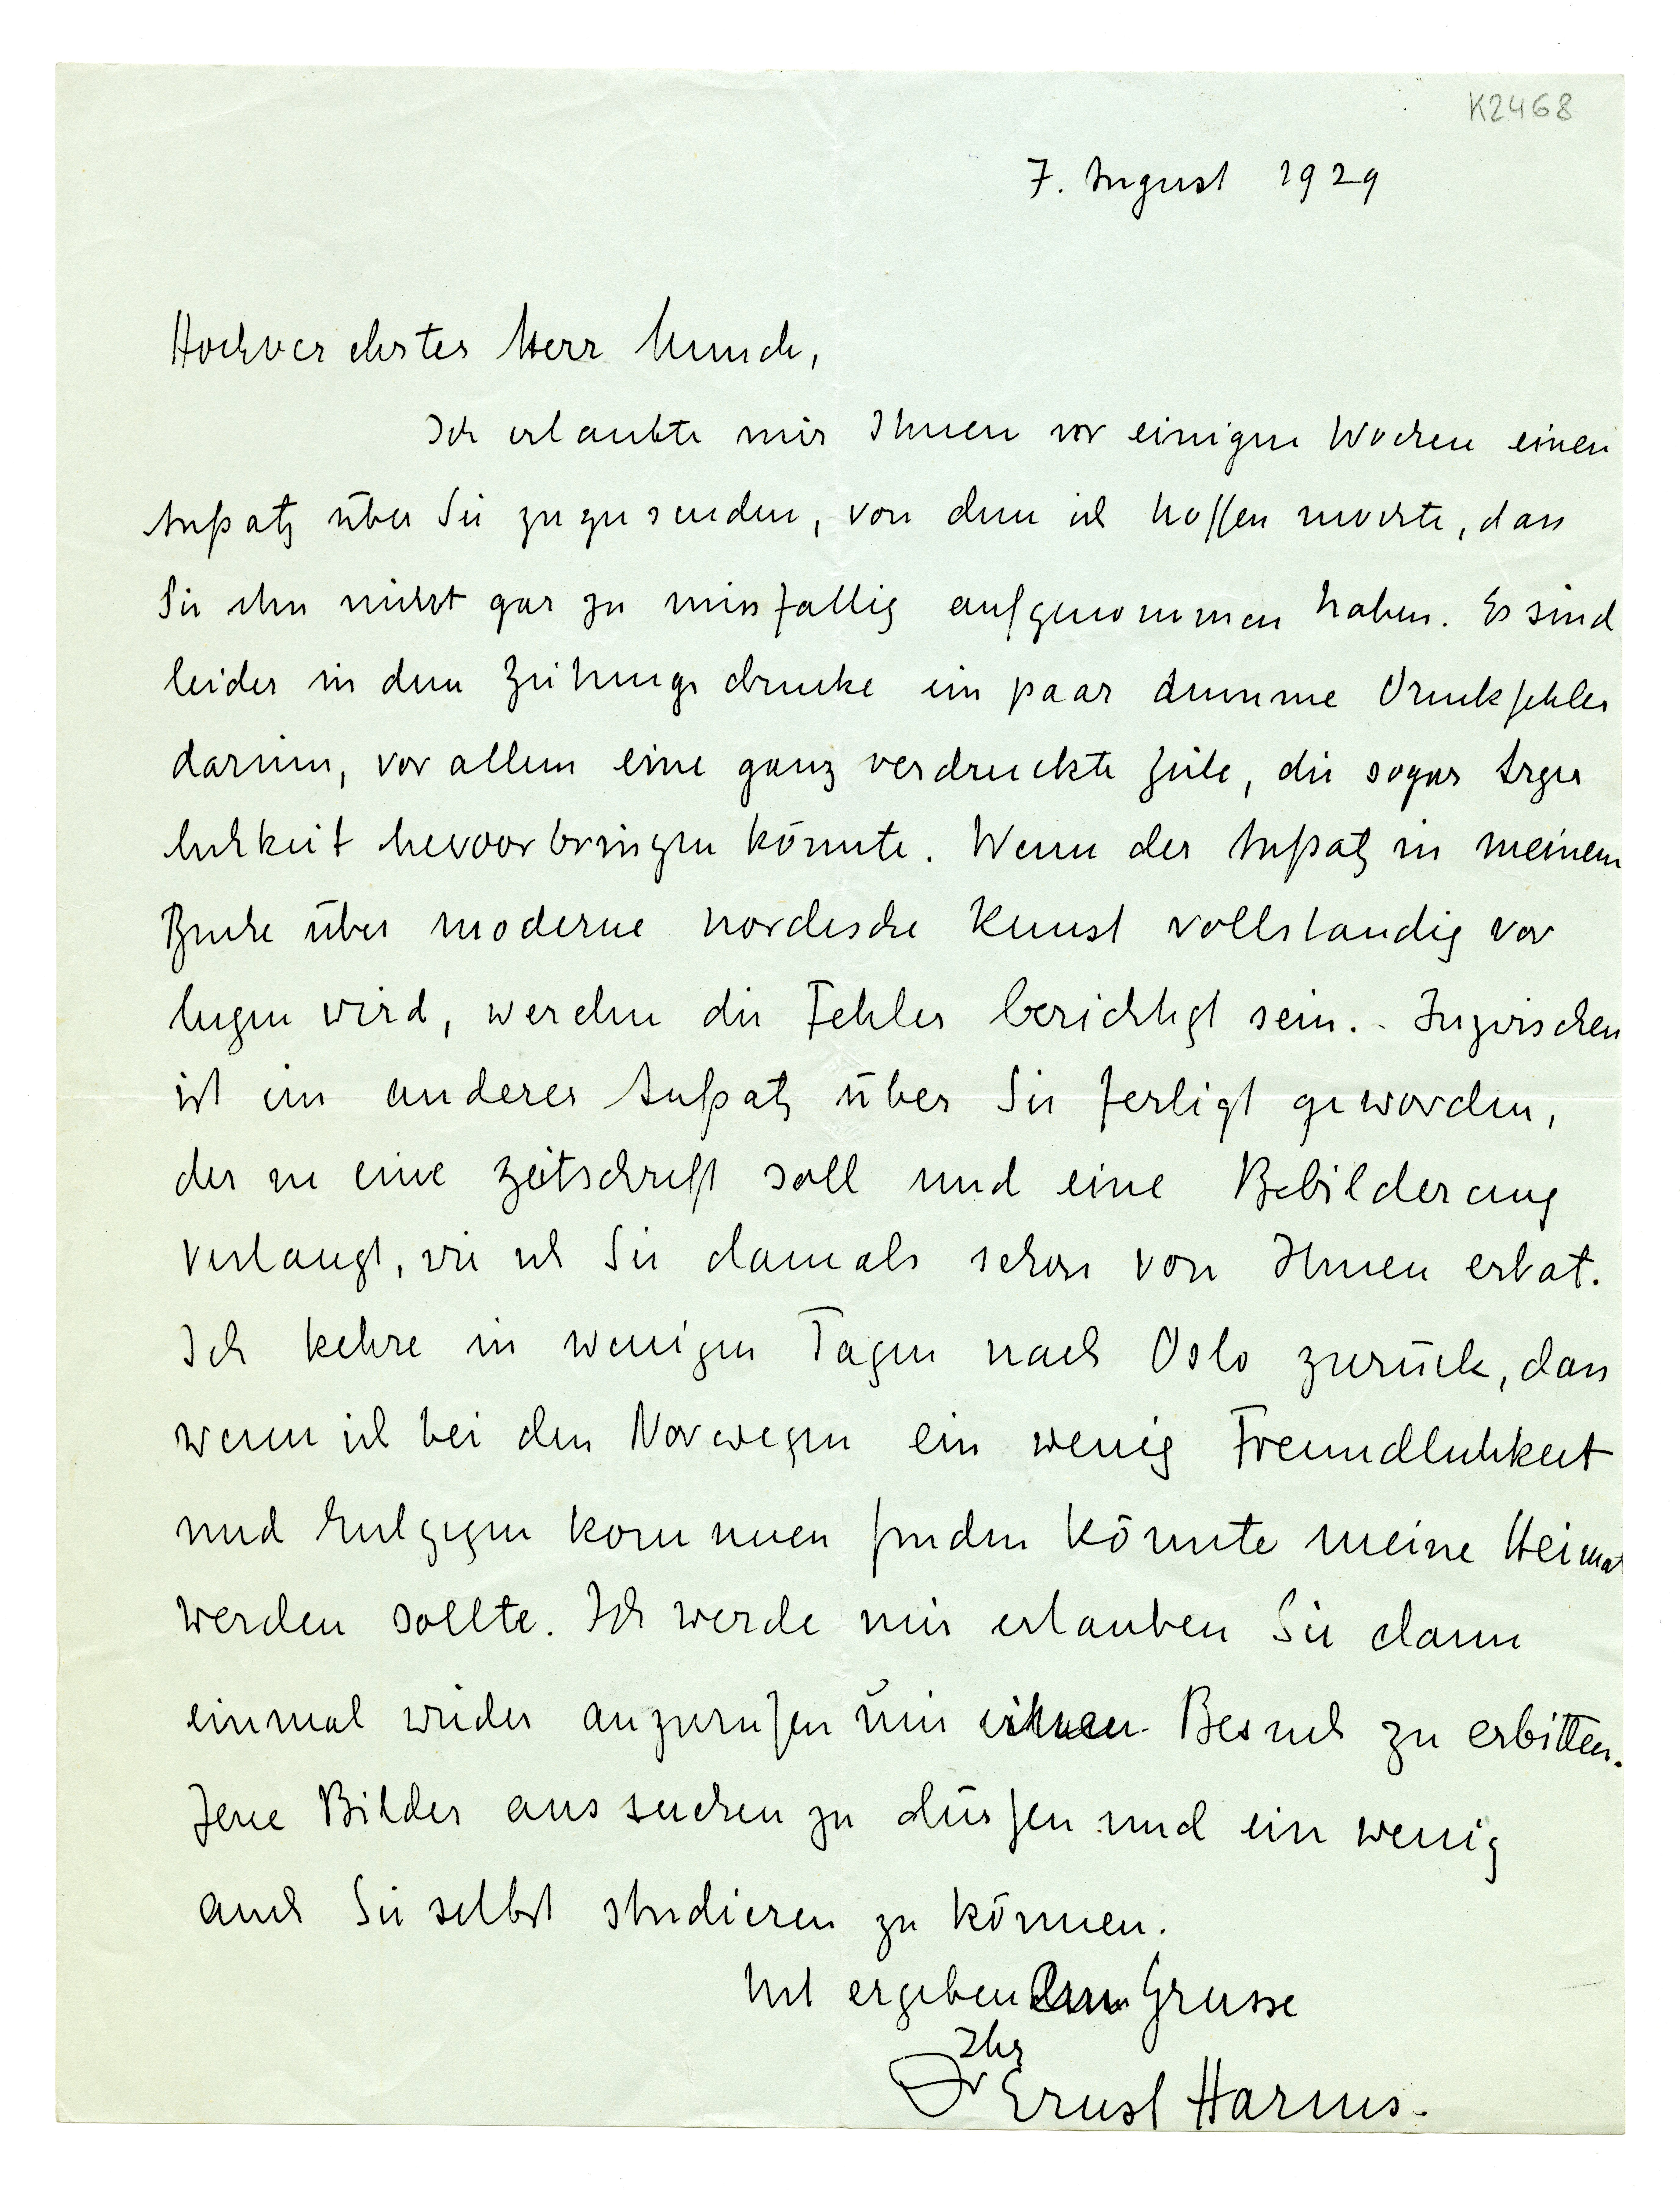 K2468
7. August 1929
Hochverehrter Herr Munch,
Ich erlaubte mir Ihnen vor einigen Wochen einen
Aufsatz über Sie zuzusenden, von dem ich hoffen mochte, dass
Sie ihn nicht gar zu missfallig aufgenommen haben. Es sind
leider in dem Zeitungsdrucke ein paar dumme Druckfehler
darinn, vor allem eine ganz verdruckte Zeile, die sogar Arger
lichkeit hevoorbringen könnte. Wenn der Aufsatz in meinem
Buche über moderne nordische Kunst vollstandig vor
liegen wird, werden die Fehler berichtigt sein. - Inzwischen
ist ein anderer Aufsatz über Sie fertigt geworden,
der in eine Zeitschrift soll und eine Bebilderung
verlangt, wie ich Sie damals schon von Ihnen erbat.
Ich kehre in wenigen Tagen nach Oslo zurück, dass
wenn ich bei den Norwegen ein wenig Freundlichkeit
und Entgegenkommen finden könnte meine Heimat
werden sollte. Ich werde mir erlauben Sie dann
einmal wieder anzurufen um Besuch zu erbitten.
Jene Bilder aussuchen zu dürfen und ein wenig
auch Sie selbst studieren zu können.
Mit ergebendem Grusse
Ihr
Dr Ernst Harms.